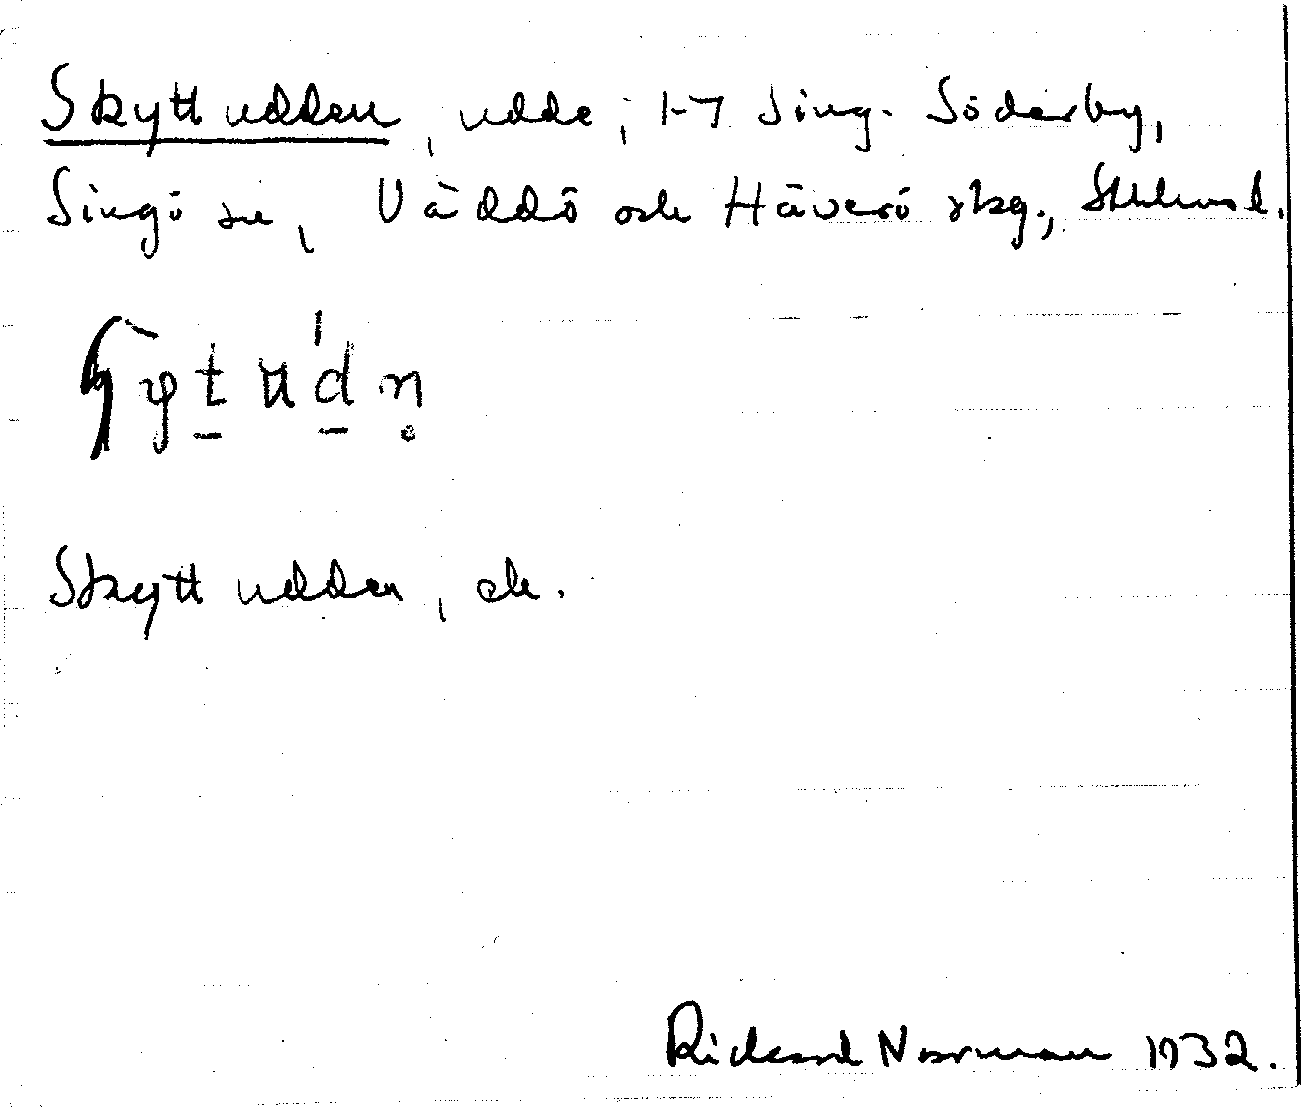 Skyttudden, udde, 1-7 Sing. Söderby,
Singö sn, Väddö och Häverö skg., Sthlms l.
Skyttudden, ek.
Rickard Norman 1932.